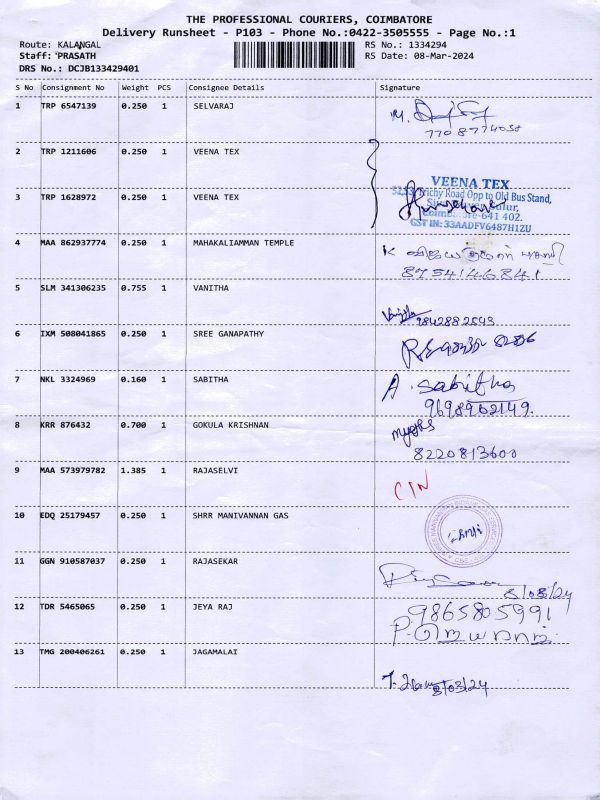 THE PROFESSIONAL COURIERS, COIMBATORE
Delivery Runsheet - P103 - Phone No.:0422-3505555 - Page No.:1
Route: KALANGAL RS No.: 1334294
Staff: PRASATH RS Date: 08-Mar-2024
DRS No.: DCJB133429401
S No Consignment No Weight PCS Consignee Details Signature
1 TRP 6547139 0.250 1 SELVARAJ
7708774038
2 TRP 1211606 0.250 1 VEENA TEX
VEENA TEX
3 TRP 1628972 0.250 1 VEENA TEX
Trichy Road Opp to Old Bus Stand,
Coimbatore-641 402.
GST IN: 33AADFV6487H1ZU
4 MAA 862937774 0.250 1 MAHAKALIAMMAN TEMPLE
8754146841
5 SLM 341306235 0.755 1 VANITHA
Vanitha 9842882543
6 IXM 508041865 0.250 1 SREE GANAPATHY
7 NKL 3324969 0.160 1 SABITHA
A. Sabitha
9698902149.
8 KRR 876432 0.700 1 GOKULA KRISHNAN
8220813600
9 MAA 573979782 1.385 1 RAJASELVI
CIN
10 EDQ 25179457 0.250 1 SHRR MANIVANNAN GAS
11 GGN 910587037 0.250 1 RAJASEKAR
8/03/24
12 TDR 5465065 0.250 1 JEYA RAJ
9865805991
13 TMG 200406261 0.250 1 JAGAMALAI
8/03/24